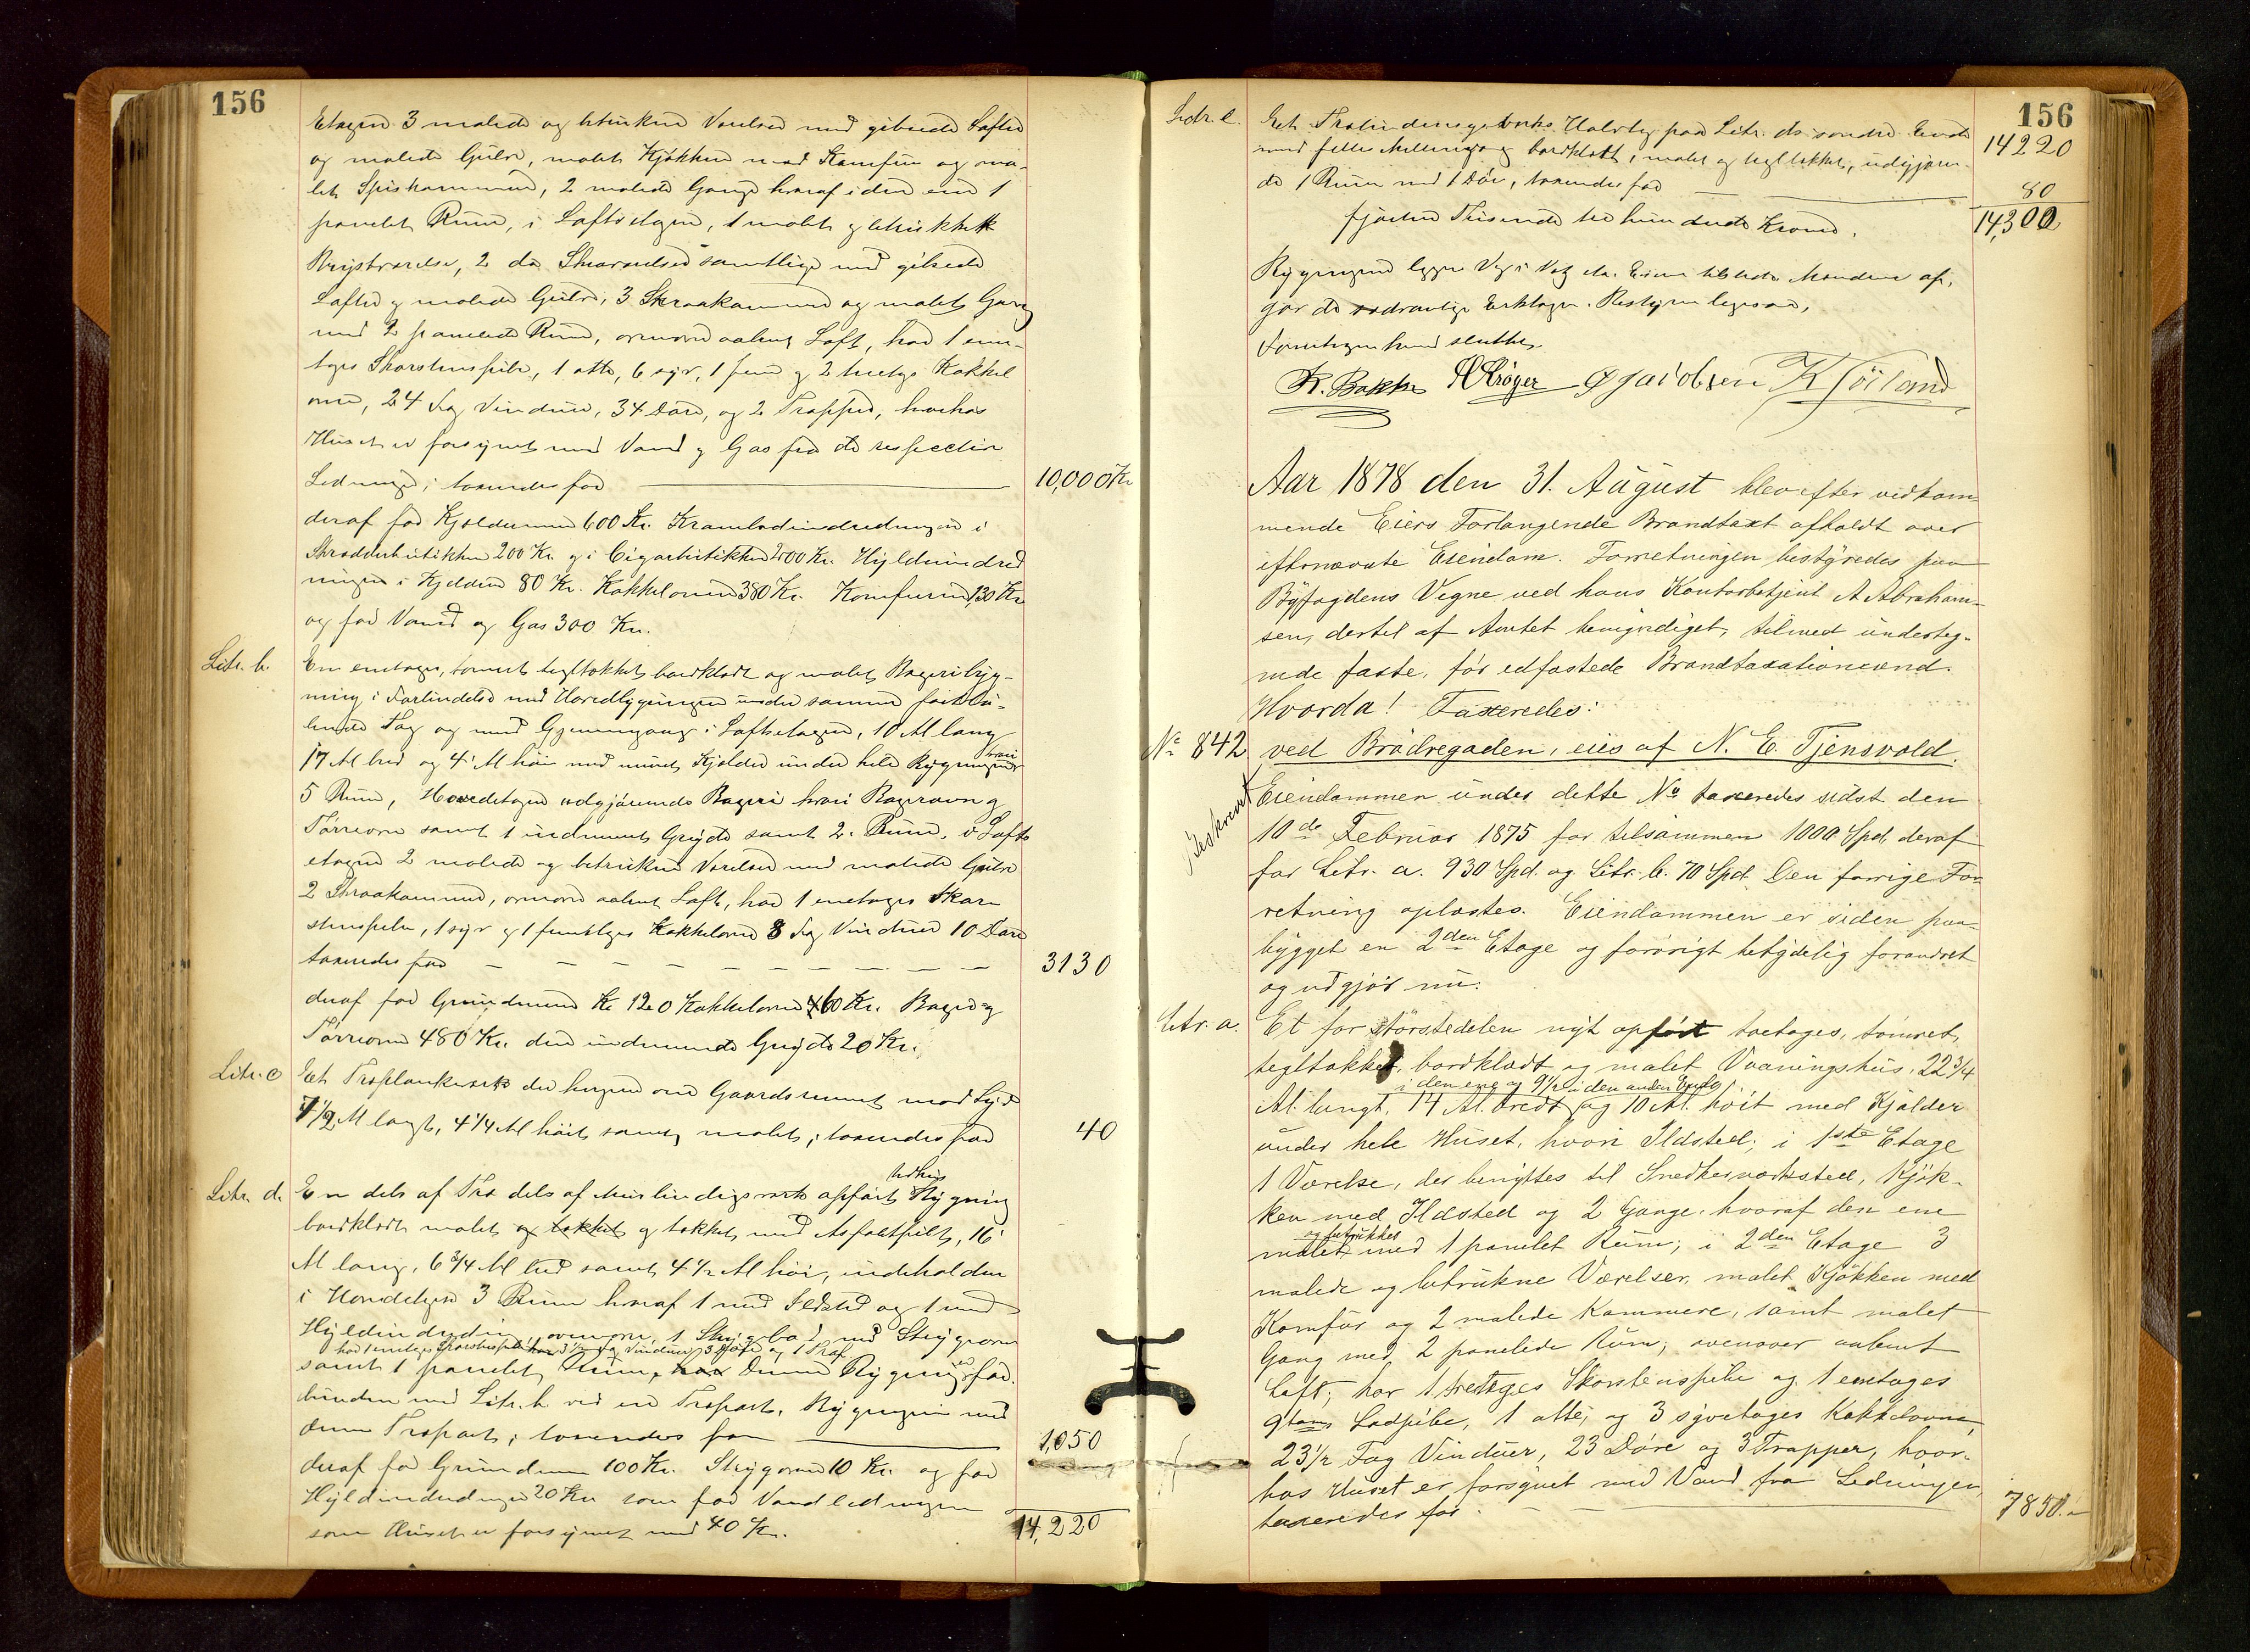 156
Etagen 3 malede og betrukne Værelser med gibsede Lofter
og malede Gulve, malet Kjøkken med Komfur og ma-
let Spiskammer, 2 malede Gange hvoraf i den ene 1
panelet Rum, i Loftsetagen, 1 malet og betrukket
Kvistværelse, 2 do Skraaværelser samtlige med gibsede
Lofter og malede Gulve, 3 Skraakammer og malet Gang
med 2 panelede Rum, ovenover aabent Loft, har 1 een-
tages Skorstenspibe, 1 otte, 6 syv, 1 fem og 2 tretages Kakkel
ovne, 24 Fag Vinduer, 34 Døre, og 2 Trapper, hvorhos
Huset er forsynet med Vand og Gas fra de respective
Ledninger; taxeredes for
10,000 Kr
deraf for Kjælderen 600 Kr. Krambodindredningen i
200 Kr. og i Cigarbutikken 2500 Kr. Hyldeindred
ningen i Kjælderen 80 Kr. Kakkelovnene 380 Kr. Komfuren 130 Kr
og for Vand og Gas 300 Kr.
Litr. b.
En eenetages, tømret tegltækket, bordklædt og malet Bageribyg-
ning i Forbindelse med Hovedbygningen under samme
Tag og med Gjennemgang i Loftsetagen, 10 Al lang
17 Al bred og 4 Al høi med muret Kjælder under hele Bygningen hvori
5 Rum, Hovedetagen udgjørende Bageri hvori Bagerovn og
Tørreovn samt 1 indmuret Gryde samt 2 Rum, i Lofts
etagen 2 malede og betrukne Værelser med malede Gulve
2 Skraakammer, ovenover aabent Loft, har 1 eenetages Skor
stenspibe, 1 syv og 1 femetages Kakkelovn 8 Fag Vinduer 10 Døre
taxeredes for
3130
deraf for Grundmuren Kr 120 Kakkelovnene 60 Kr. Bager og
Tørreovn 480 Kr. den indmurede Gryde 20 Kr.
Litr. c
Et Træplankeværk der hegner om Gaardsrummet mod Syd
7 1/2 Al langt, 4 1/4 Al høit samt malet; taxeredes for
40
Litr. d.
En dels af Træ dels af Murbindingsværk opført Udhus Bygning
bordklædt malet og tækket og tækket med Asfaltfilt, 16
Al lang, 6 3/4 Al bred samt 4 1/2 Al høi, indeholder
i Hovedetagen 3 Rum hvoraf 1 med Ildsted og 1 med
Hyldeindredning, ovenover 1 med Strygeovn
har 1 eenetages Skorstenspibe 3 1/2 Fag Vinduer 3 Døre og 1 Trap.
samt 1 panelet Rum, har Denne Bygning er for-
bunden med Litr. b ved en Træport. Bygningen med
denne Træport; taxeredes for
1,050
deraf for Grundmuren 100 Kr. Strygeovn 10 Kr. og for
Hyldeindredningen 20 Kr som for Vandledningen
som Huset er forsynet med 40 Kr.
14,220
156
Litr. e.
Et Træbindingsværks Halvtag paa Litr. ds søndre Ende
med og bordklædt, malet og tegltækket, udgjøren-
de 1 Rum med 1 Dør, taxeredes for
14220
80
fjorten Tusinde tre hundrede Kroner.
14,300
Bygningen ligger Væg i Væg
gav de
Forretningen hermed sluttet.
R. Bakke H Krøger G Jacobsen K Sørland
Aar 1878 den 31. August blev efter vedkom
mende Eiers Forlangende Brandtaxt afholdt over
efternævnte Eiendom. Forretningen bestyredes paa
Byfogdens Vegne ved hans Kontorbetjent A Abraham-
sen, dertil af Amtet bemyndiget, tilmed underteg-
nede faste, før edfæstede Brandtaxationsmænd.
Hvorda! Taxeredes:
No 842
ved Brødregaden, eies af N. E. Tjensvold.
Beskrevet
Eiendommen under dette No taxeredes sidst den
10de Februar 1875 for tilsammen 1000 Spd, deraf
for Litr. a. 930 Spd. og Litr. b. 70 Spd. Den forrige For-
retning oplæstes. Eiendommen er siden paa-
bygget en 2den Etage og forøvrigt betydelig forandret
og udgjør nu:
Litr. a.
Et for størstedelen nyt opført toetages, tømret,
tegltækket, bordklædt og malet Vaaningshus, 22 3/4
i den ene og 9 1/2 i den anden Ende
Al. langt, 14 Al. bredt og 10 Al. høit med Kjælder
under hele Huset, hvori Ildsted; i 1ste Etage
1 Værelse, der benyttes til Snedkerværksted, Kjøk-
ken med Ildsted og 2 Gange, hvoraf den ene
og betrukket
malet med 1 panelet Rum; i 2den Etage 3
malede og betrukne Værelser, malet Kjøkken med
Komfur og 2 malede Kammere, samt malet
Gang med 2 panelede Rum; ovenover aabent
Loft; har 1 tretages Skorstenspibe og 1 eenetages
Lodpibe, 1 otte, og 3 syvetages Kakkelovne,
23 1/2 Fag Vinduer, 23 Døre og 3 Trapper, hvor-
hos Huset er forsynet med Vand fra Ledningen,
taxeredes for
7850.-